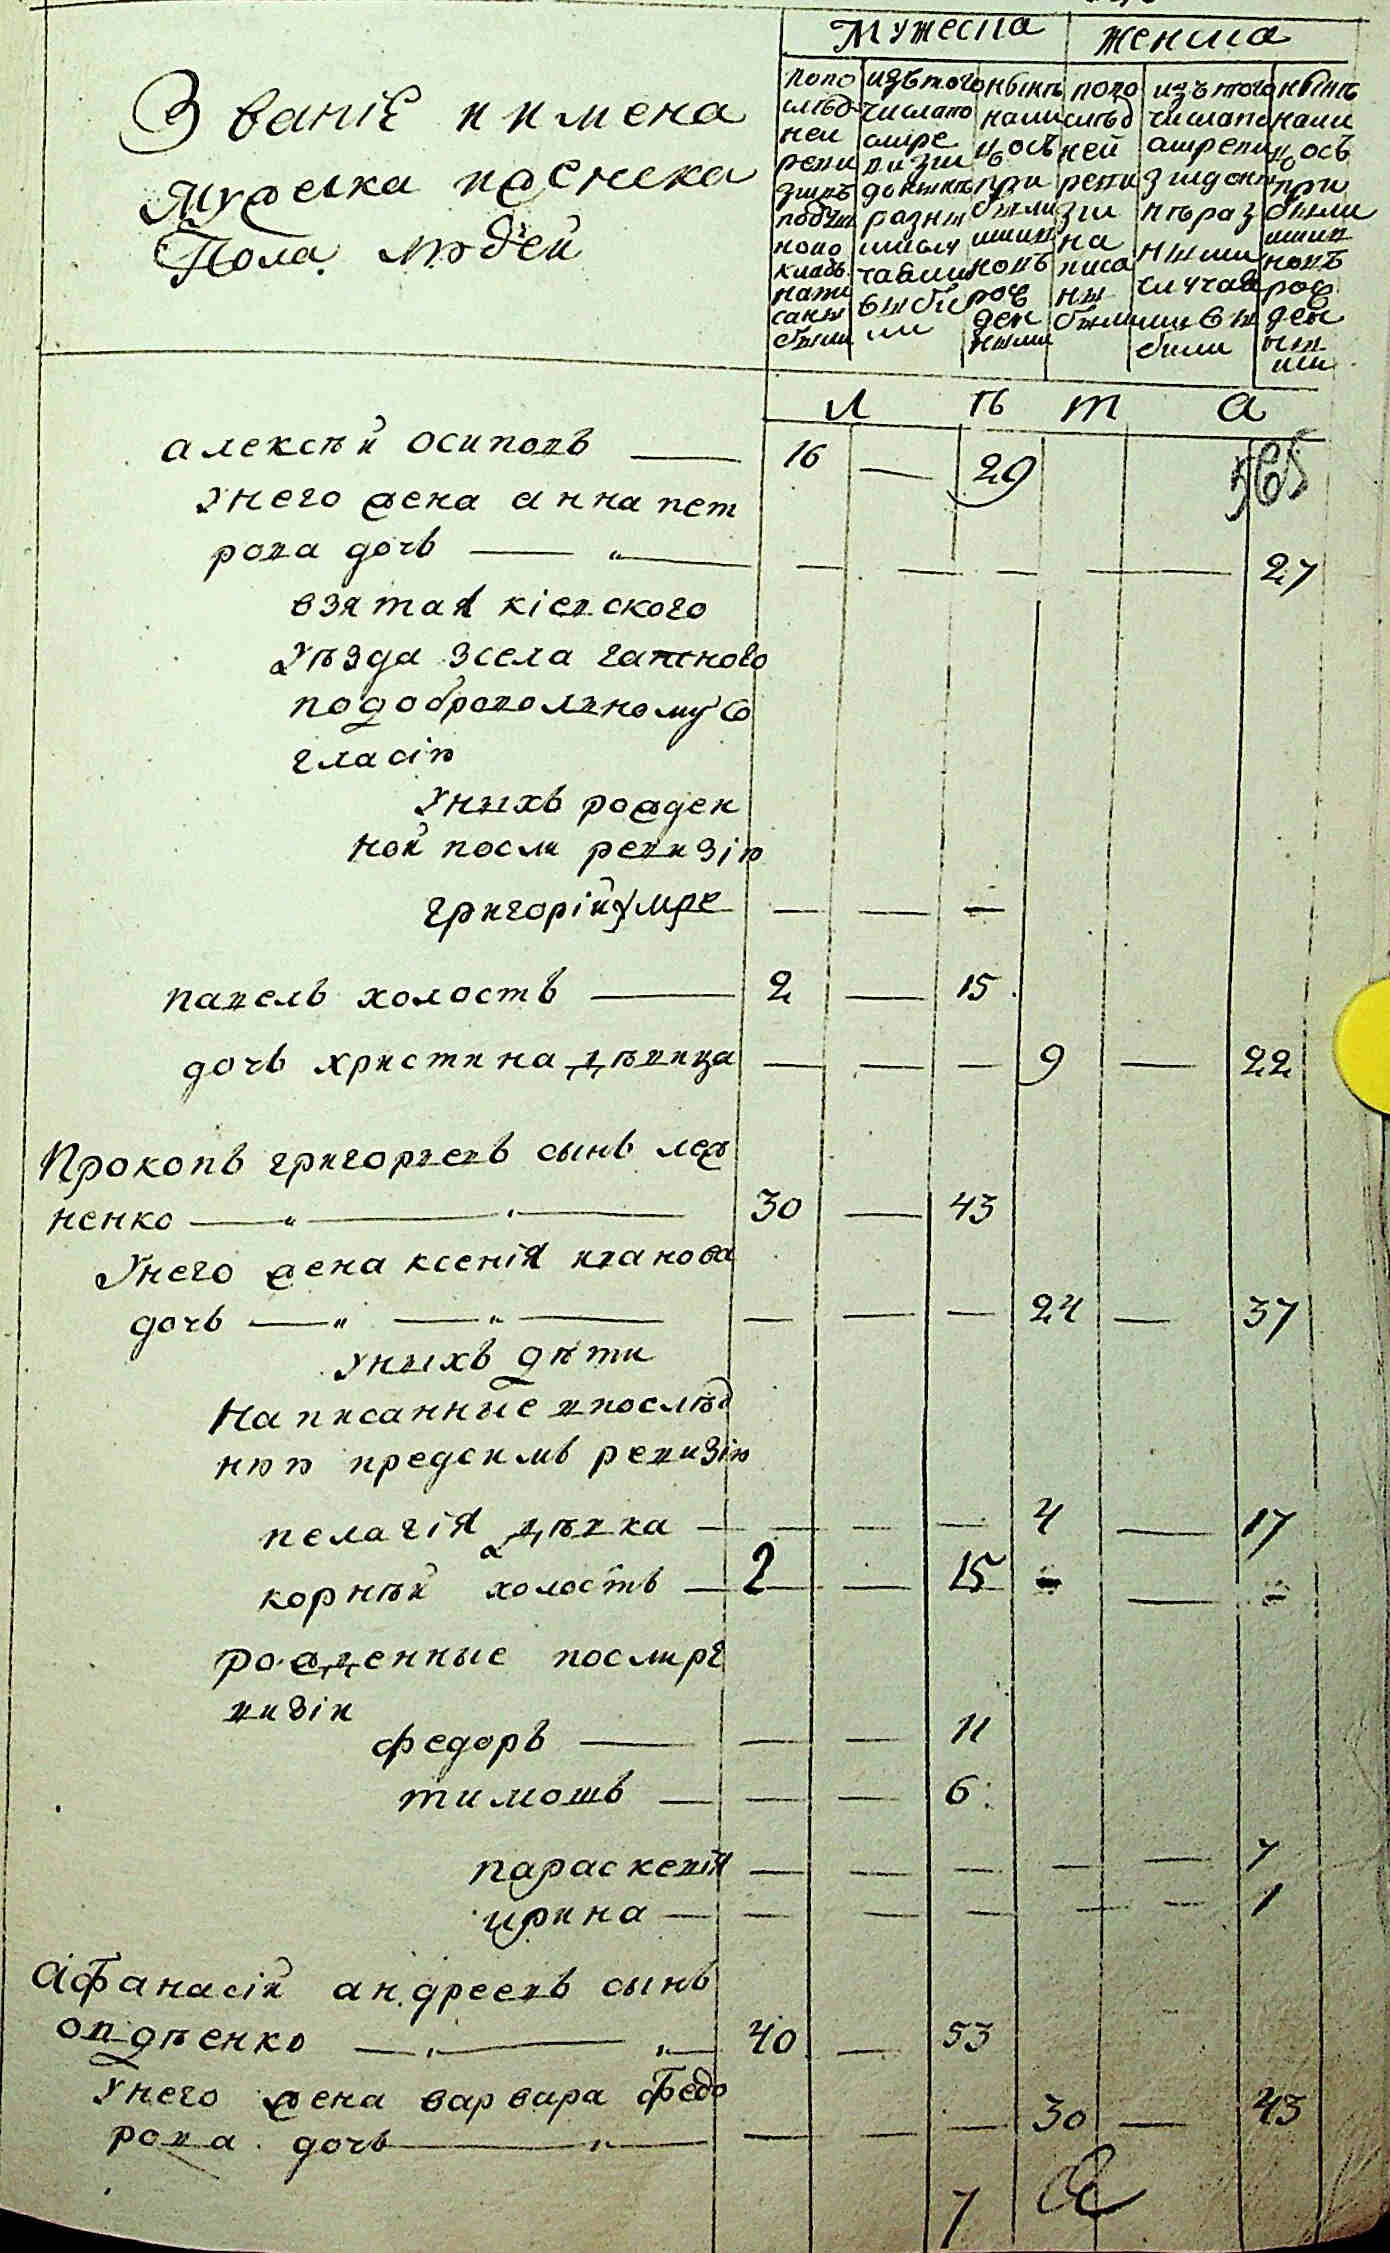 Мужеска женска
Званіе и имена
Мужеска и женска
Пола людей
попо
слѣд
ней
реви
зіи
подуш
ному
написаны
были
изъ того
числа по
мре
разны
ми случаями
выбыли
нынѣ
на лицо съ
при
былыми
и вновь
рож
ден
ными
попо
слѣд
ней
реви
зіи
на
писа
ны
были
изъ того
числа по
мре
разными
случая
ми вы
были
нынѣ
на ли
цо съ
при
былы
ми и
вновь
рож
ден
ны
ми
л ѣ т а
алексѣй осиповъ 16 — 29
565
у него жена анна пет
рова дочь — " — 27
взятая кіевского
уѣзда з села гатного
по добровольному со
гласію
у нихъ рожден
ной посли ревизіи
григорій умре — — —
павелъ холостъ — 2 — 15
дочь христина дѣвица — — — 9 — 22
Прокопъ григорьевъ сынъ лев
ненко — " — " — 30 — 43
У него жена ксенія иванова
дочь — " — " — — — — 24 — 37
у нихъ дѣти
написанные в послѣд
нюю предсимъ ревизію
пелагія дѣвка — — — — 4 — 17
корнѣй холостъ — 2 — 15 — — —
рожденные посли ре
визіи
федоръ — — — 11
тимошъ — — — 6
параскевія — — — — — 7
ирина — — — — — — 1
Афанасій андреевъ сынъ
овдѣенко — " — " — 40 — 53
у него жена варвара федо
рова дочь — " — — — — 30 — 43
7